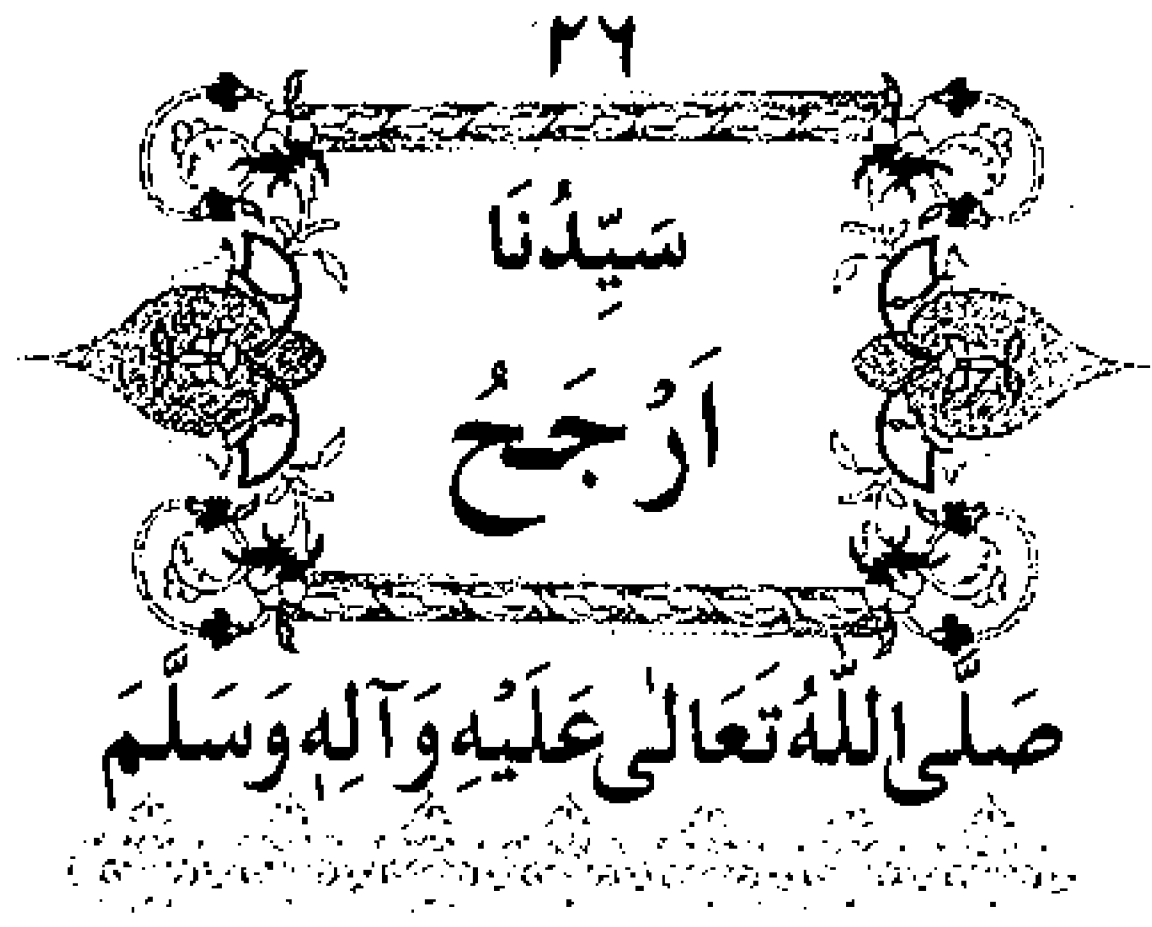 ٢٦
سَيِّدُنَا
اَرْجَحُ
صَلَّى اللّٰهُ تَعَالٰى عَلَيْهِ وَآلِهٖ وَسَلَّمَ